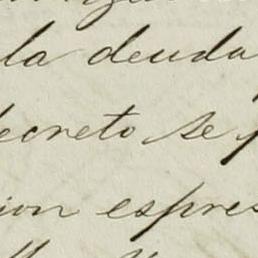 la deuda
decreto se
ion expres